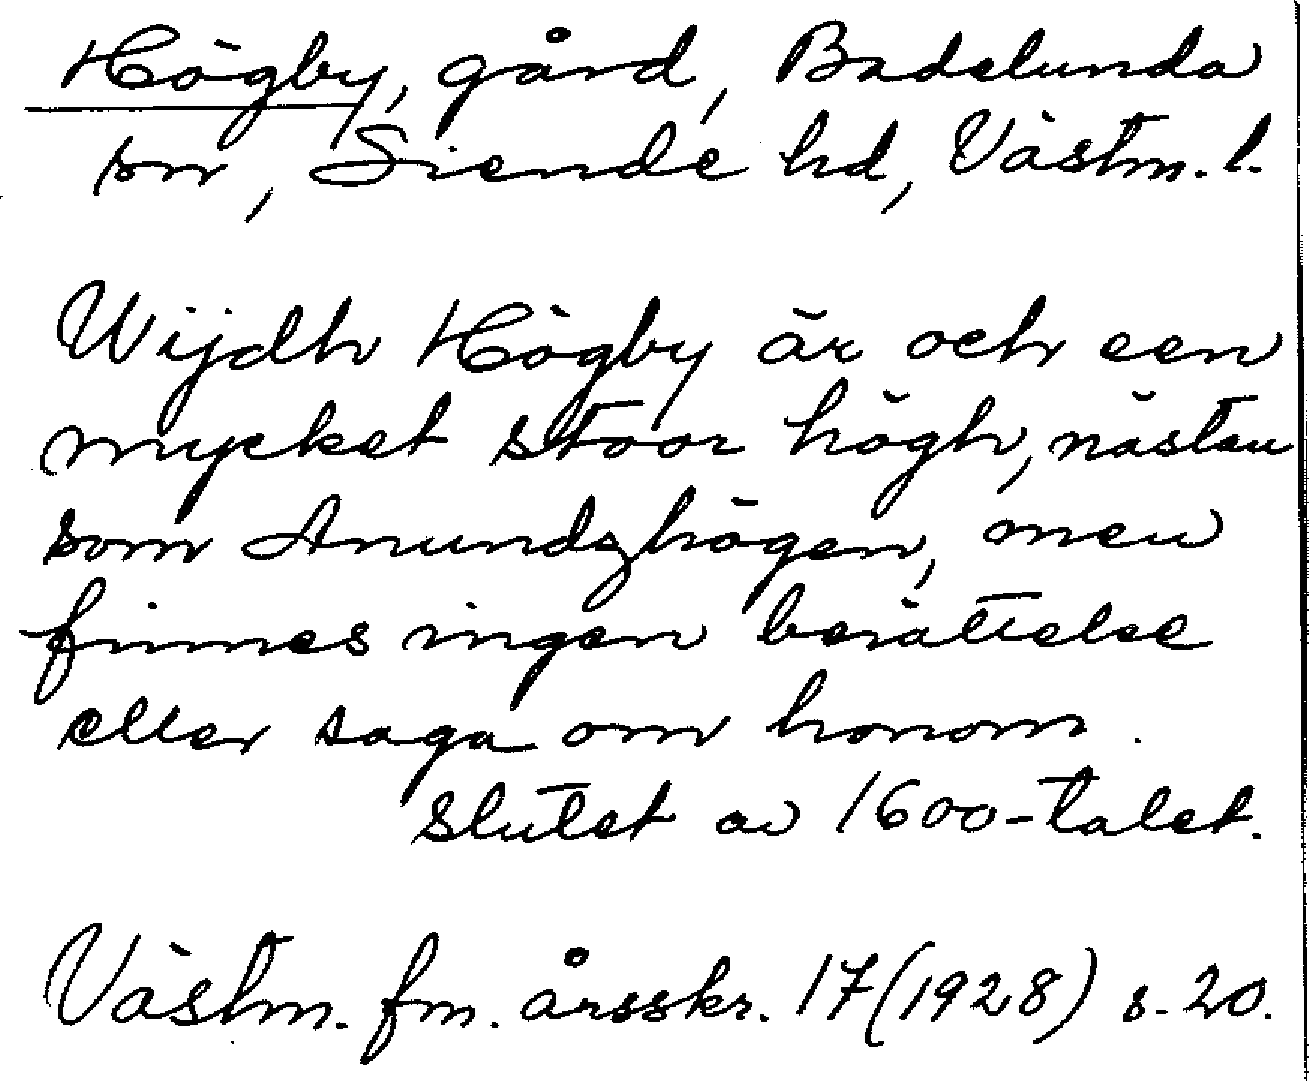 Högby, gård, Badelunda
sn, Siende hd, Västm. l.
Wijdh Högby är och een
mycket stoor högh, nästan
som Anundzhögen, men
finnes ingen berättelse
eller saga om honom.
Slutet av 1600-talet.
Västm. fm. årsskr. 17 (1928) s. 20.